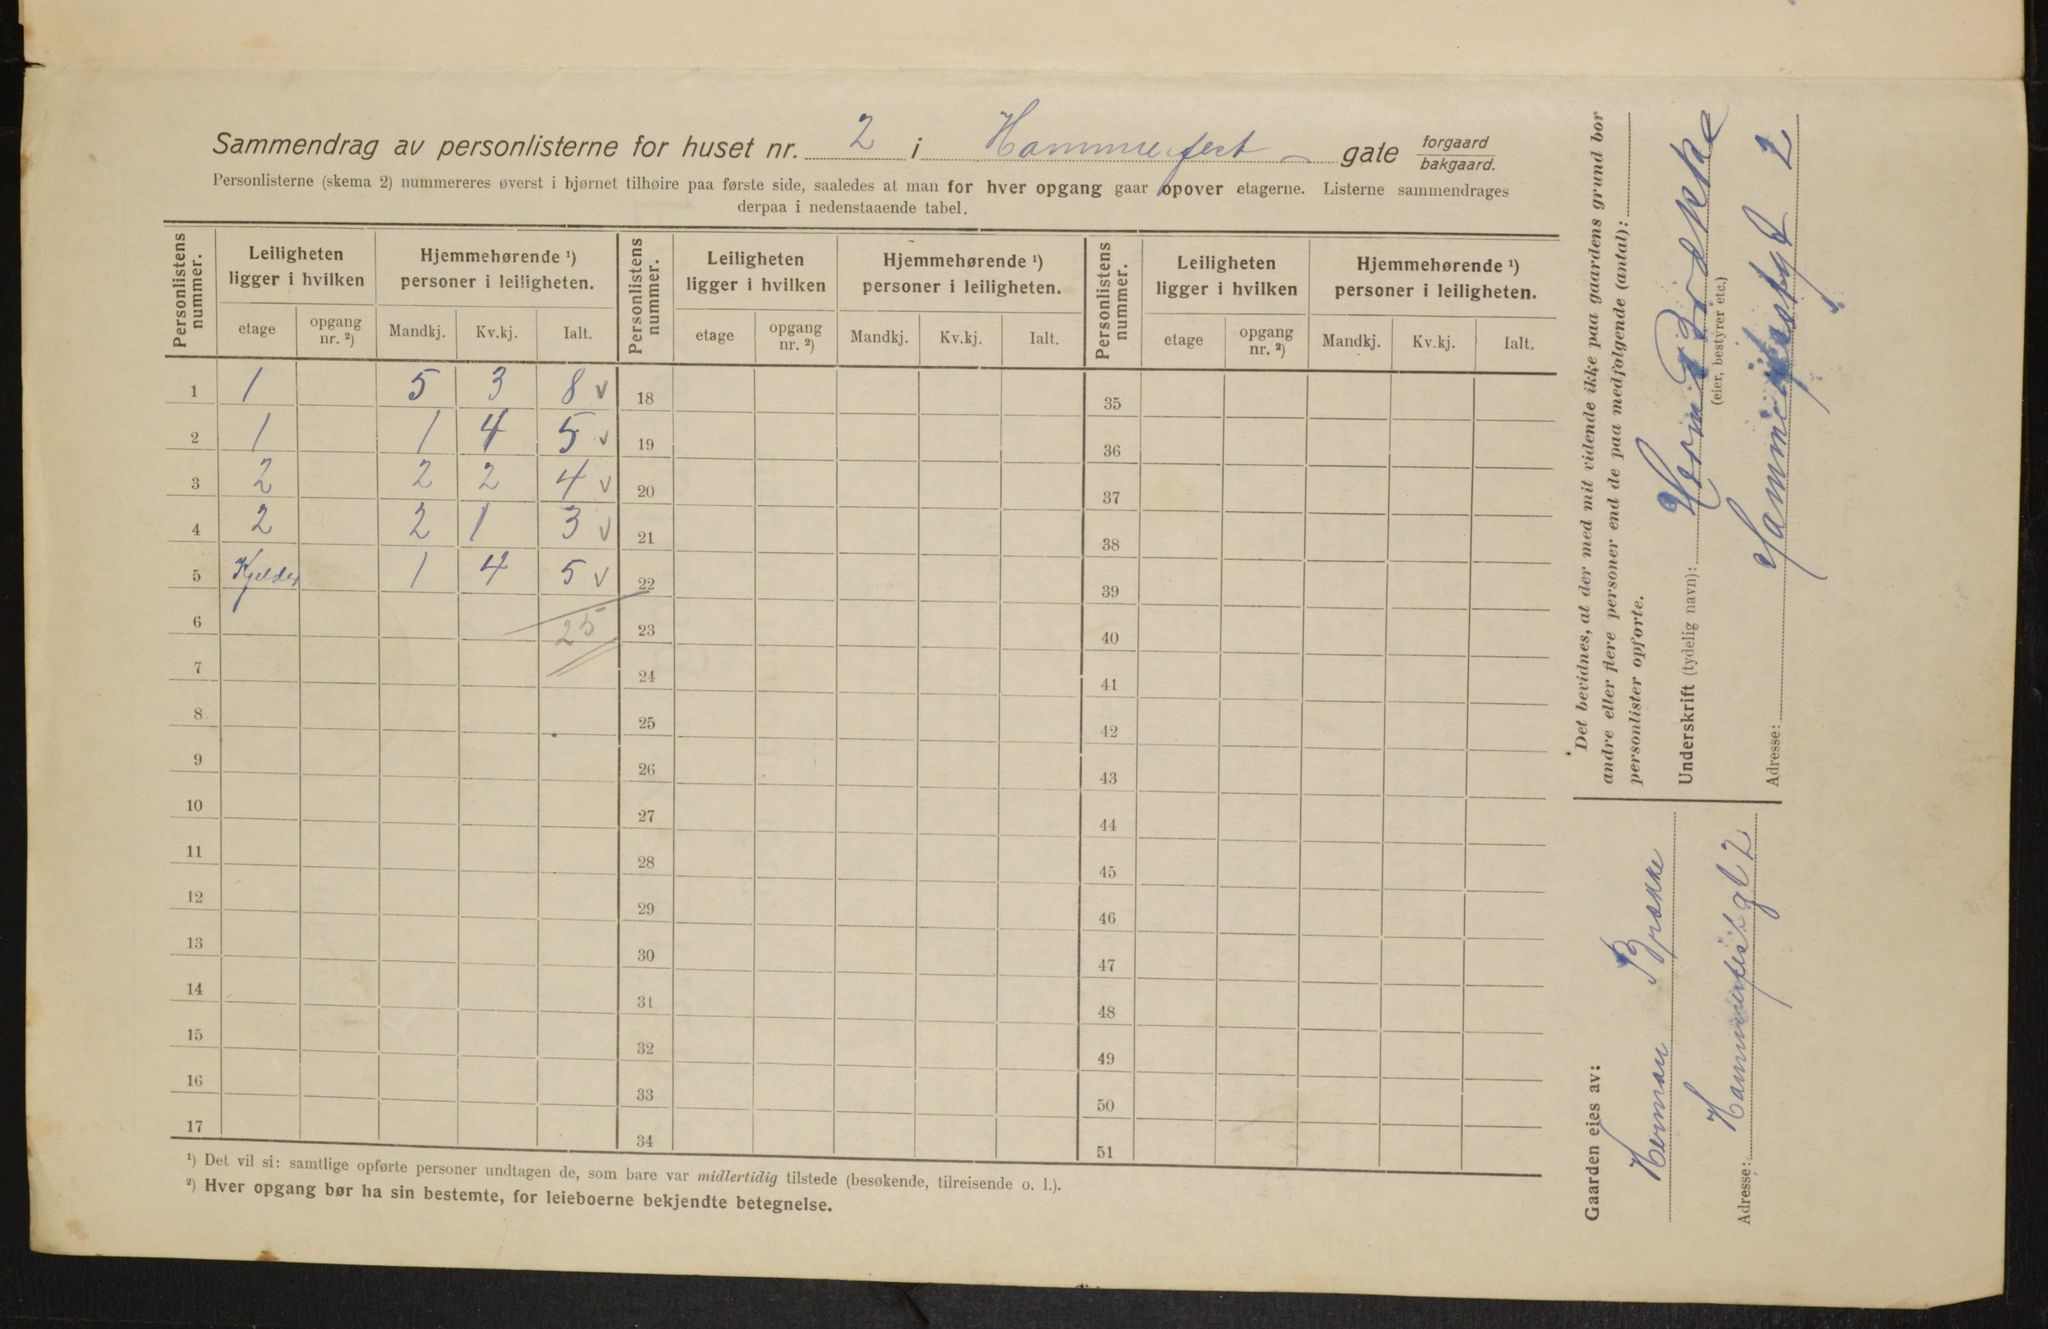 Sammendrag av personlisterne for huset nr. 2 i Hammerfest gate forgaard bakgaard.
Personlisterne (skema 2) nummereres øverst i hjørnet tilhøire paa første side, saaledes at man for hver opgang gaar opover etagerne. Listerne sammendrages
derpaa i nedenstaaende tabel.
Personlistens nummer. Leiligheten ligger i hvilken Hjemmehørende ¹) personer i leiligheten. Personlistens nummer. Leiligheten ligger i hvilken Hjemmehørende ¹) personer i leiligheten. Personlistens nummer. Leiligheten ligger i hvilken Hjemmehørende ¹) personer i leiligheten.
etage opgang nr. ²) Mandkj. Kv.kj. Ialt. etage opgang nr. ²) Mandkj. Kv.kj. Ialt. etage opgang nr. ²) Mandkj. Kv.kj. Ialt.
1 1 5 3 8 v 18 35
2 1 1 4 5 v 19 36
3 2 2 2 4 v 20 37
4 2 2 1 3 v 21 38
5 Kjelder 1 4 5 v 22 39
6 25 23 40
7 24 41
8 25 42
9 26 43
10 27 44
11 28 45
12 29 46
13 30 47
14 31 48
15 32 49
16 33 50
17 34 51
¹) Det vil si: samtlige opførte personer undtagen de, som bare var midlertidig tilstede (besøkende, tilreisende o. l.).
²) Hver opgang bør ha sin bestemte, for leieboerne bekjendte betegnelse.
Det bevidnes, at der med mit vidende ikke paa gaardens grund bor
andre eller flere personer end de paa medfølgende (antal):
personlister opførte.
Underskrift (tydelig navn): Brække
(eier, bestyrer etc.)
Adresse: Hammerfestgt 2
Gaarden eies av:
Herman Brække
Adresse: Hammerfestgt 2